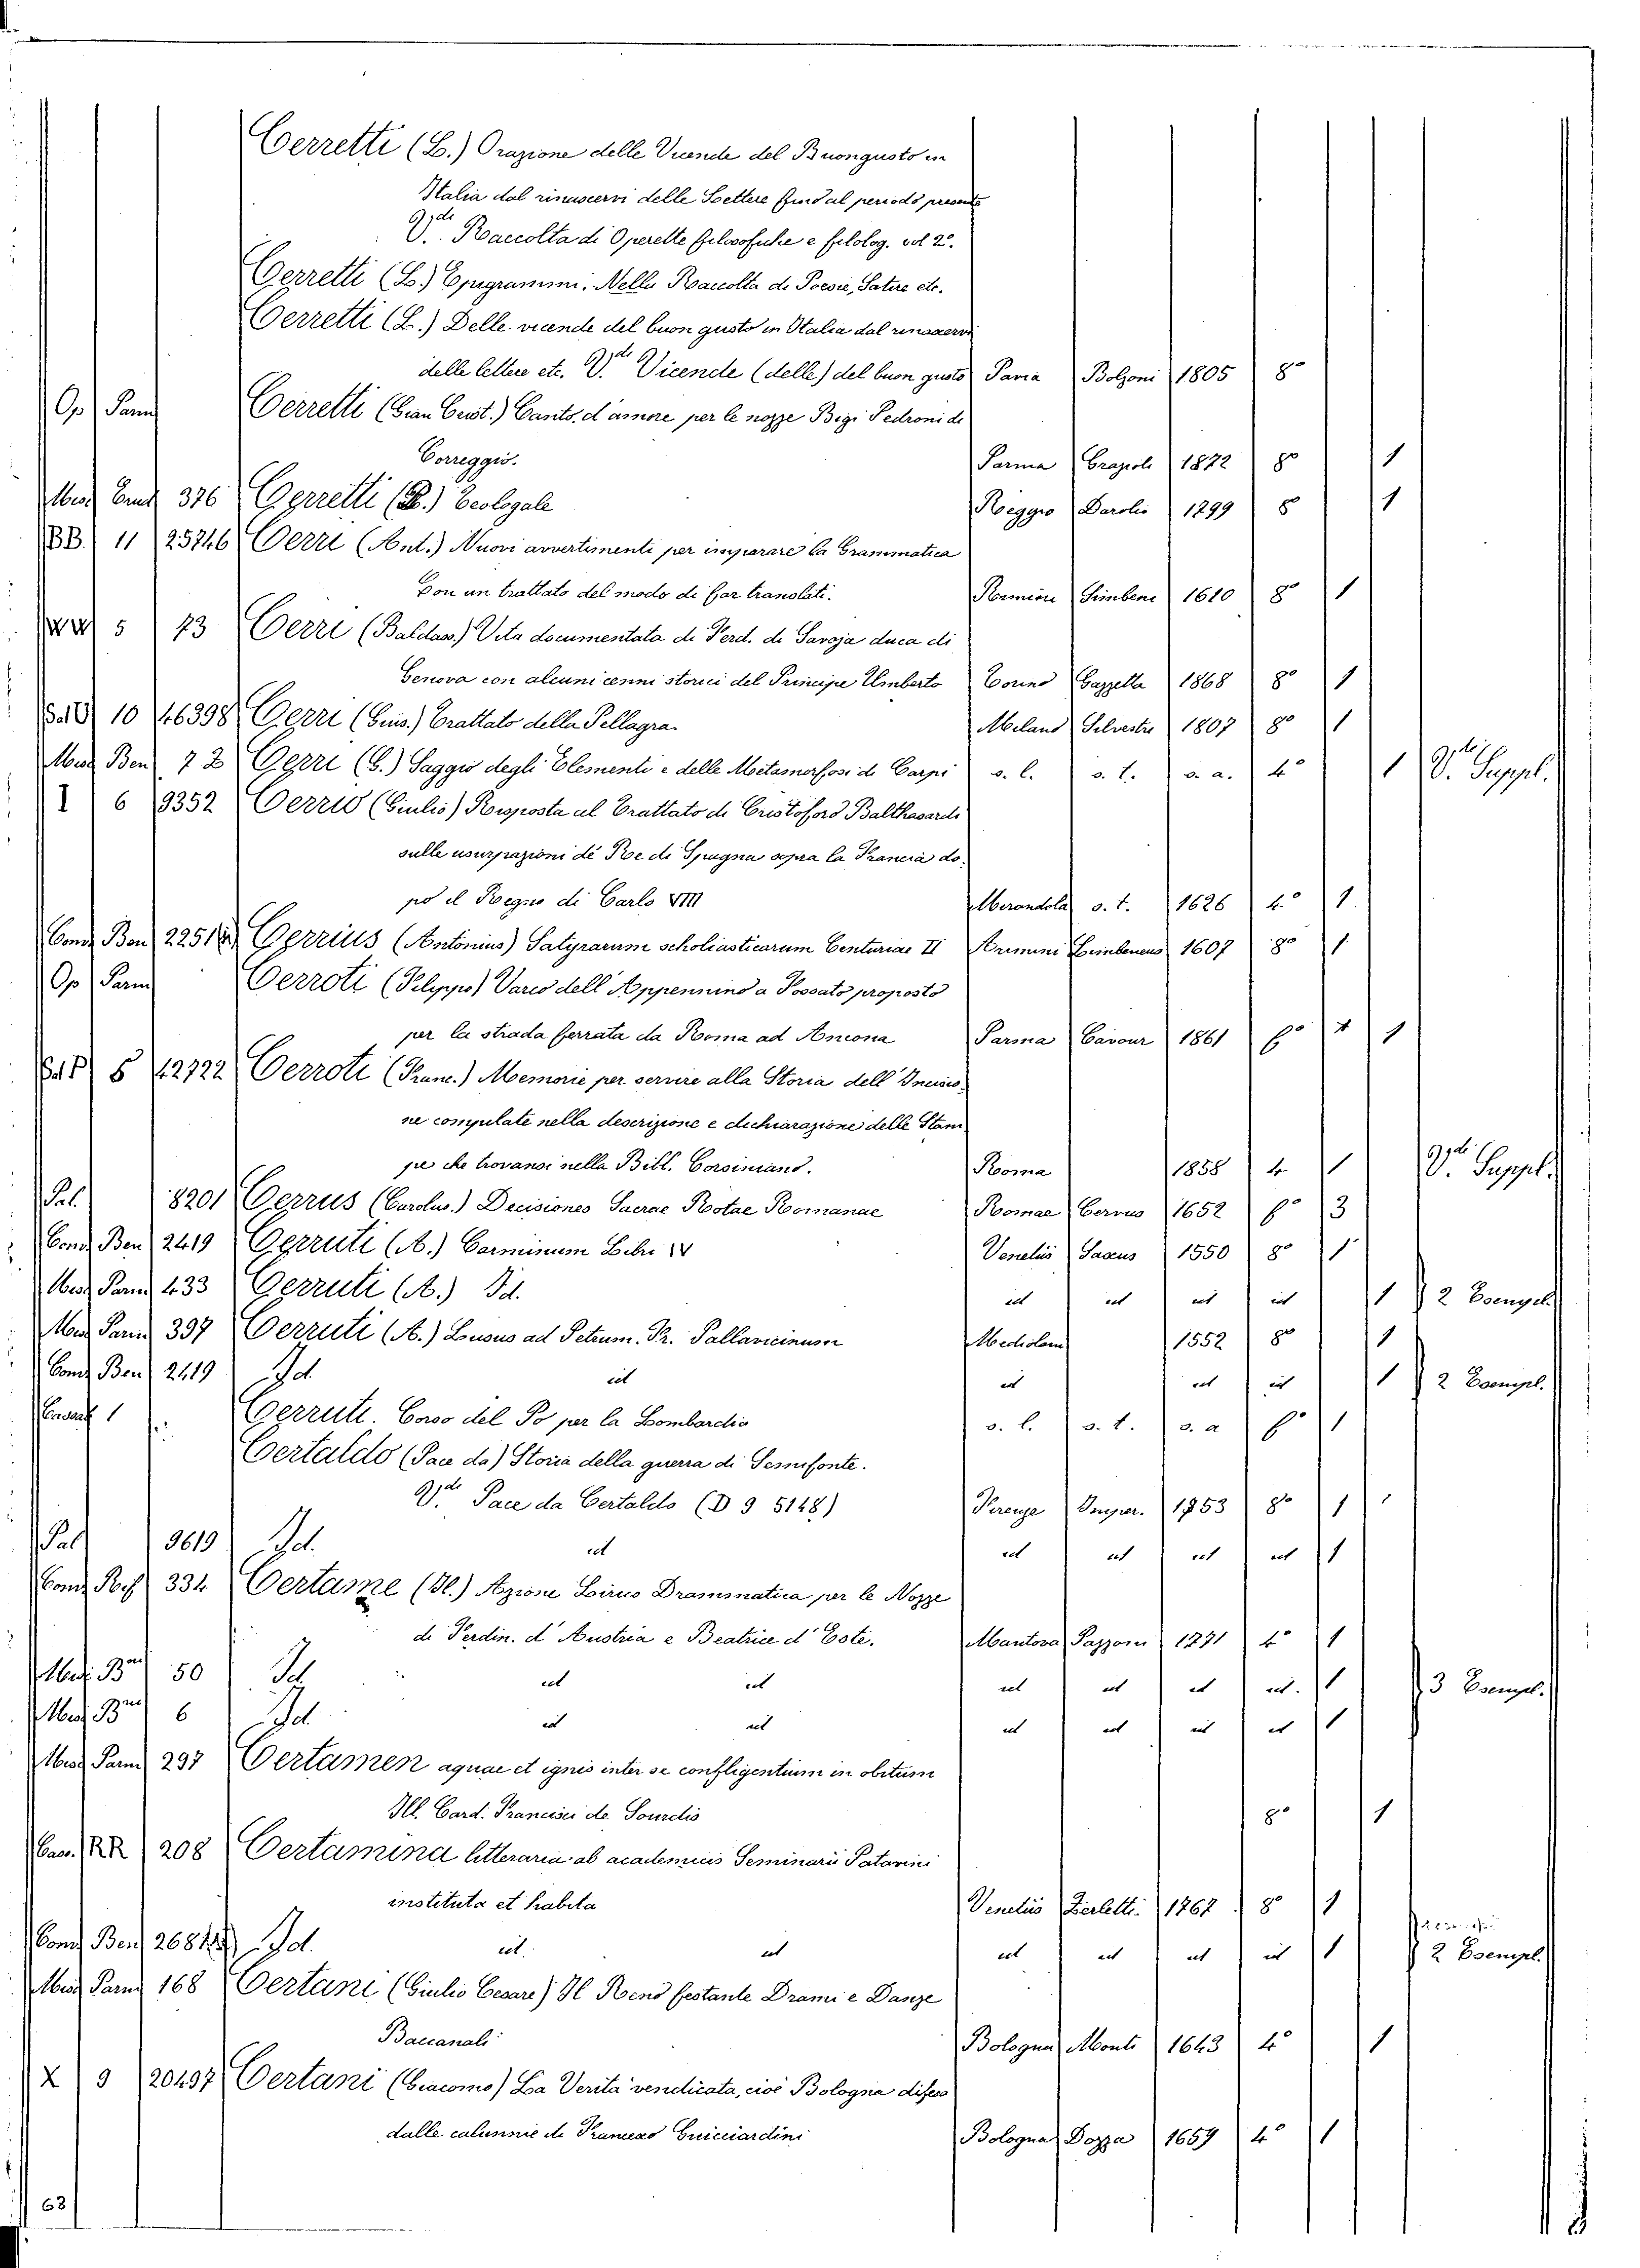 Cerretti (L.) Orazione delle Vicende del Buongusto in
Italia dal rinascervi delle Lettere fino al periodo presente
V.de Raccolta di Operette filosofiche e filolog. vol 2°.
Cerretti (L.) Epigrammi. Nella Raccolta di Poesie, Satire etc.
Cerretti (L.) Delle vicende del buon gusto in Italia dal rinascervi
delle lettere etc. V.de Vicende (delle) del buon gusto Pavia Bolzoni 1805 8°
Op Parm Cerretti (Gian Crist.) Canto d'amore per le nozze Bigi Pedroni di
Correggio. Parma Grazioli 1872 8° 1
376 Cerretti (B.) Teologale Reggio Davolio 1799 8 1
BB 11 25746 Cerri (Ant.) Nuovi avvertimenti per imparare la Grammatica
Con un trattato del modo di far translati. Rimini Simbeni 1610 8° 1
5 73 Cerri (Baldass.) Vita documentata di Ferd. di Savoja duca di
Genova con alcuni cenni storici del Principe Umberto Torino Gazzetta 1868 8° 1
10 46398 Cerri (Gius.) Trattato della Pellagra Milano Silvestri 1807 8° 1
Misc Ben 72 Cerri (G.) Saggio degli Elementi e delle Metamorfosi di Carpi s. l. s. t. s. a. 4° 1 V.de Suppl.
I 6 9352 Cerrio (Giulio) Risposta al Trattato di Cristoforo Balthasardi
sulle usurpazioni de Re di Spagna sopra la Francia do-
po il Regno di Carlo VIII Mirandola s. t. 1626 4° 1
Cond Ben 2251 Cerrius (Antonius) Satyrarum scholiasticarum Centuriae II Arimini Simbeneus 1607 8° 1
Op Parm Cerroti (Filippo) Varco dell' Appennino a Fossato proposto
per la strada ferrata da Roma ad Ancona Parma Cavour 1861 f° 1
5 12722 Cerroti (Franc.) Memorie per servire alla Storia dell' Incisio-
ne compilate nella descrizione e dichiarazione delle Stam-
pe che trovansi nella Bibl. Corsiniana. Roma 1858 4 1 V.de Suppl.
Pal. 8201 Cerrus (Carolus.) Decisiones Sacrae Rotae Romanae Romae Corvus 1652 f° 3
Cond Ben 2419 Cerruti (A.) Carminum Libri IV Venetiis Saxus 1550 8° 1
Misc Parm 433 Cerruti (A.) Id. id id id id 1 2 Esempl.
Misc Parm 397 Cerruti (A.) Lusus ad Petrum. Fr. Pallavicinum Mediolani 1552 8° 1
Cond Ben 2419 Id. id id id id 1 2 Esempl.
1 Cerruti. Corso del Po per la Lombardia s. l. s. t. s. a f° 1
Certaldo (Pace da) Storia della guerra di Semifonte.
V.de Pace da Certaldo (D 9 5148) Firenze Imper. 1753 8° 1
Pal 9619 Id. id id id id id 1
334 Certame (Il.) Azione Lirico Drammatica per le Nozze
di Ferdin. d'Austria e Beatrice d'Este. Mantova Pazzoni 1771 4° 1
50 Id id id id id id id. 1 3 Esempl.
6 Id. id id id id id id 1
Misc Parm 297 Certamen aquae et ignis inter se confligentium in obitum
Ill. Card. Francisci de Sourdis 8° 1
Cas. RR 208 Certamina litteraria ab academicis Seminarii Patavini
instituta et habita Venetiis Zerletti. 1767 8 1
Cond Ben 2681 Id. id. id id id id id 1 2 Esempl.
Misc Parm 168 Certani (Giulio Cesare) Il Reno festante Drami e Danze
Baccanali Bologna Monti 1643 4° 1
X 9 20497 Certani (Giacomo) La Verità vendicata, cioè Bologna difesa
dalle calunnie di Francesco Guicciardini Bologna Dozza 1659 4° 1
63